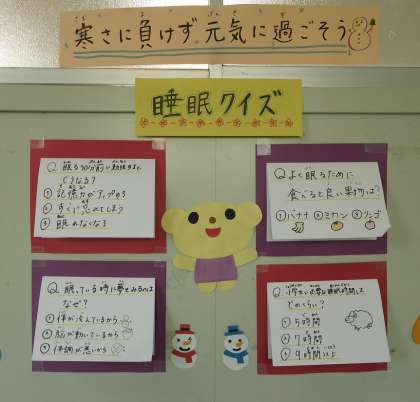 寒さに負けず元気に過ごそう
睡眠クイズ
Q 眠る1時間前に勉強すると、
どうなる?
① 記憶力がアップする
② すぐに忘れてしまう
③ 眠れなくなる
Q よく眠るために
食べると良い果物は?
① バナナ ② ミカン ③ リンゴ
Q 眠っている時に夢をみるのは
なぜ?
① 体が冷えているから
② 脳が動いているから
③ 体調が悪いから
Q 小学生に必要な睡眠時間は
どれくらい?
① 5時間
② 7時間
③ 9時間以上